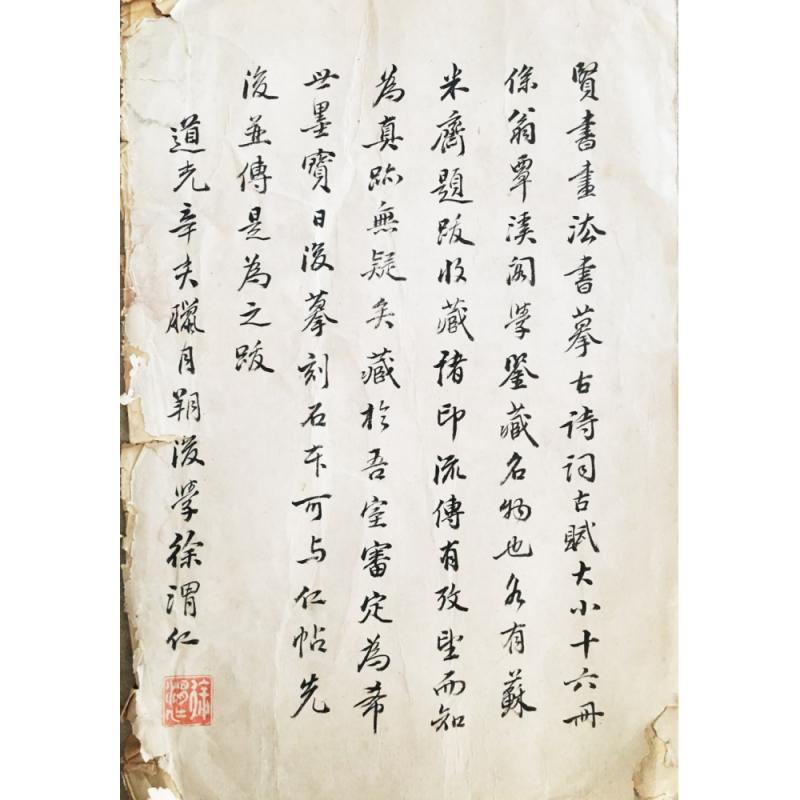 賢書畫法書摹古詩詞古賦大小十六冊
係翁覃溪閣學鑒藏名物也各有蘇
米齋題跋收藏諸印流傳有攷望而知
為真跡無疑矣藏於吾室審定為希
世墨寶日後摹刻石本可与仁帖先
後並傳是為之跋
道光辛丑臘月朔後學徐渭仁
徐渭仁